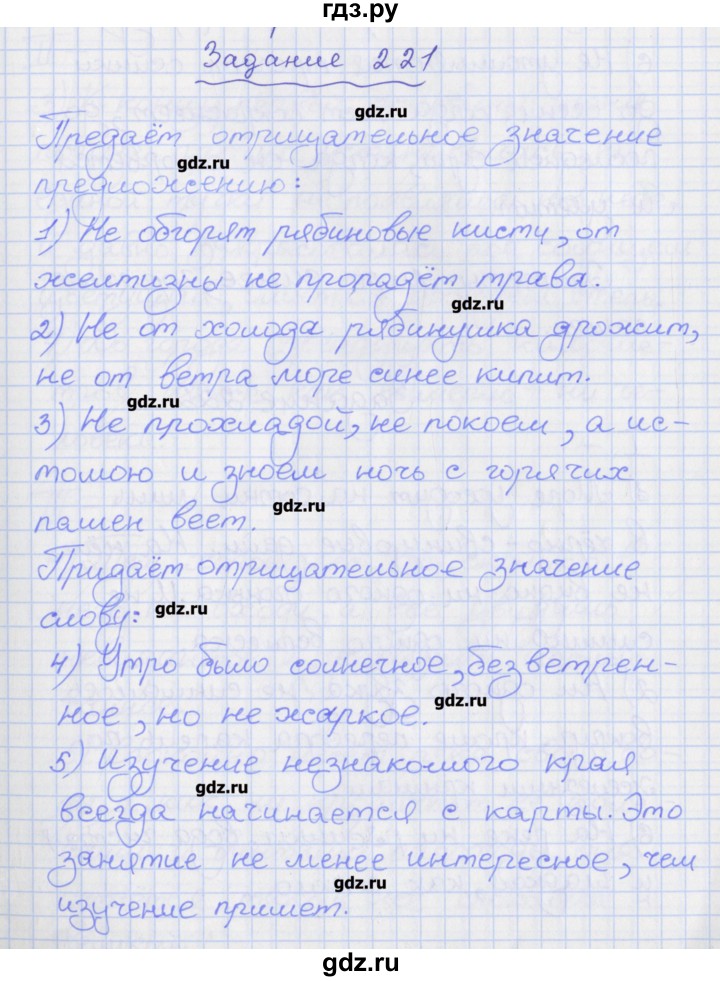 гдз.ру
Задание 221
gdz.ru
Предаёт отрицательное значение
gdz.ru
предложению:
1) Не обгорят рябиновые кисти, от
желтизны не пропадёт трава.
gdz.ru
2) Не от холода рябинушка дрожит,
не от ветра море синее кипит.
gdz.ru
3) Не прохладой, не покоем, а ис-
томою и зноем ночь с горячих
gdz.ru
пашен веет.
Придаёт отрицательное значение
слову:
gdz.ru
4) Утро было солнечное, безветрен-
ное, но не жаркое.
gdz.ru
5) Изучение незнакомого края
gdz.ru
всегда начинается с карты. Это
занятие не менее интересное, чем
gdz.ru
изучение примет.
gdz.ru